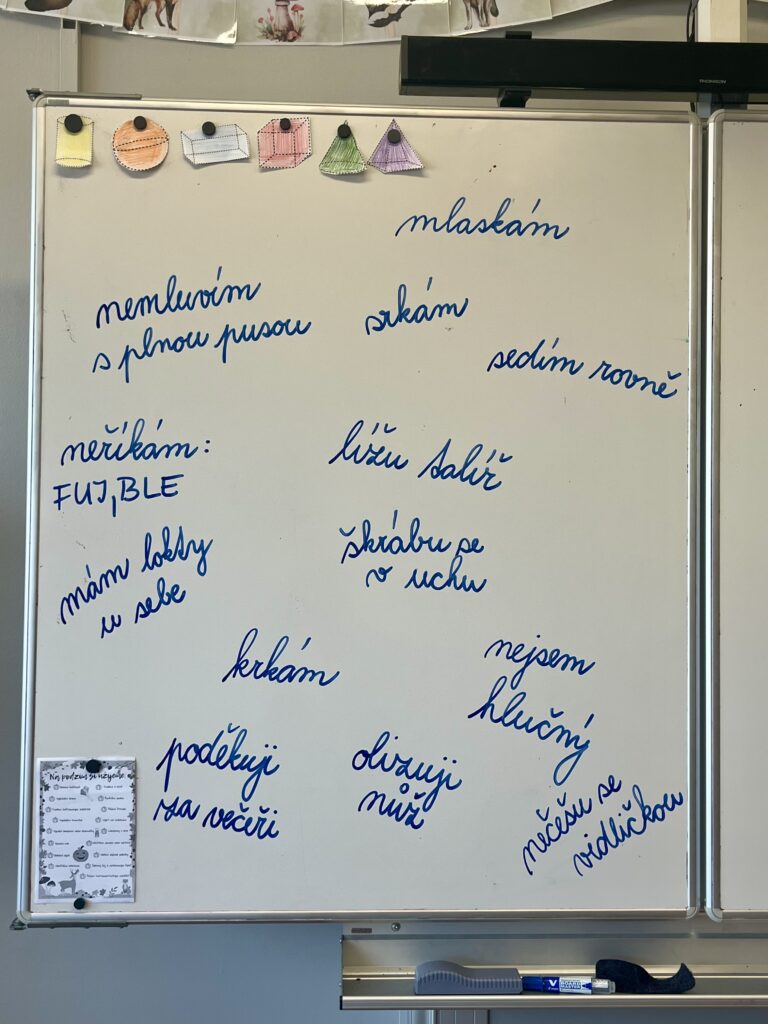 THOMSON
mlaskám
nemluvím
s plnou pusou
srkám
sedím rovně
neříkám:
FUJ, BLE
lížu talíř
mám lokty
u sebe
škrábu se
v uchu
krkám
nejsem
hlučný
poděkuji
za večeři
olizuji
nůž
nečešu se
vidličkou
Na podzim si užijeme